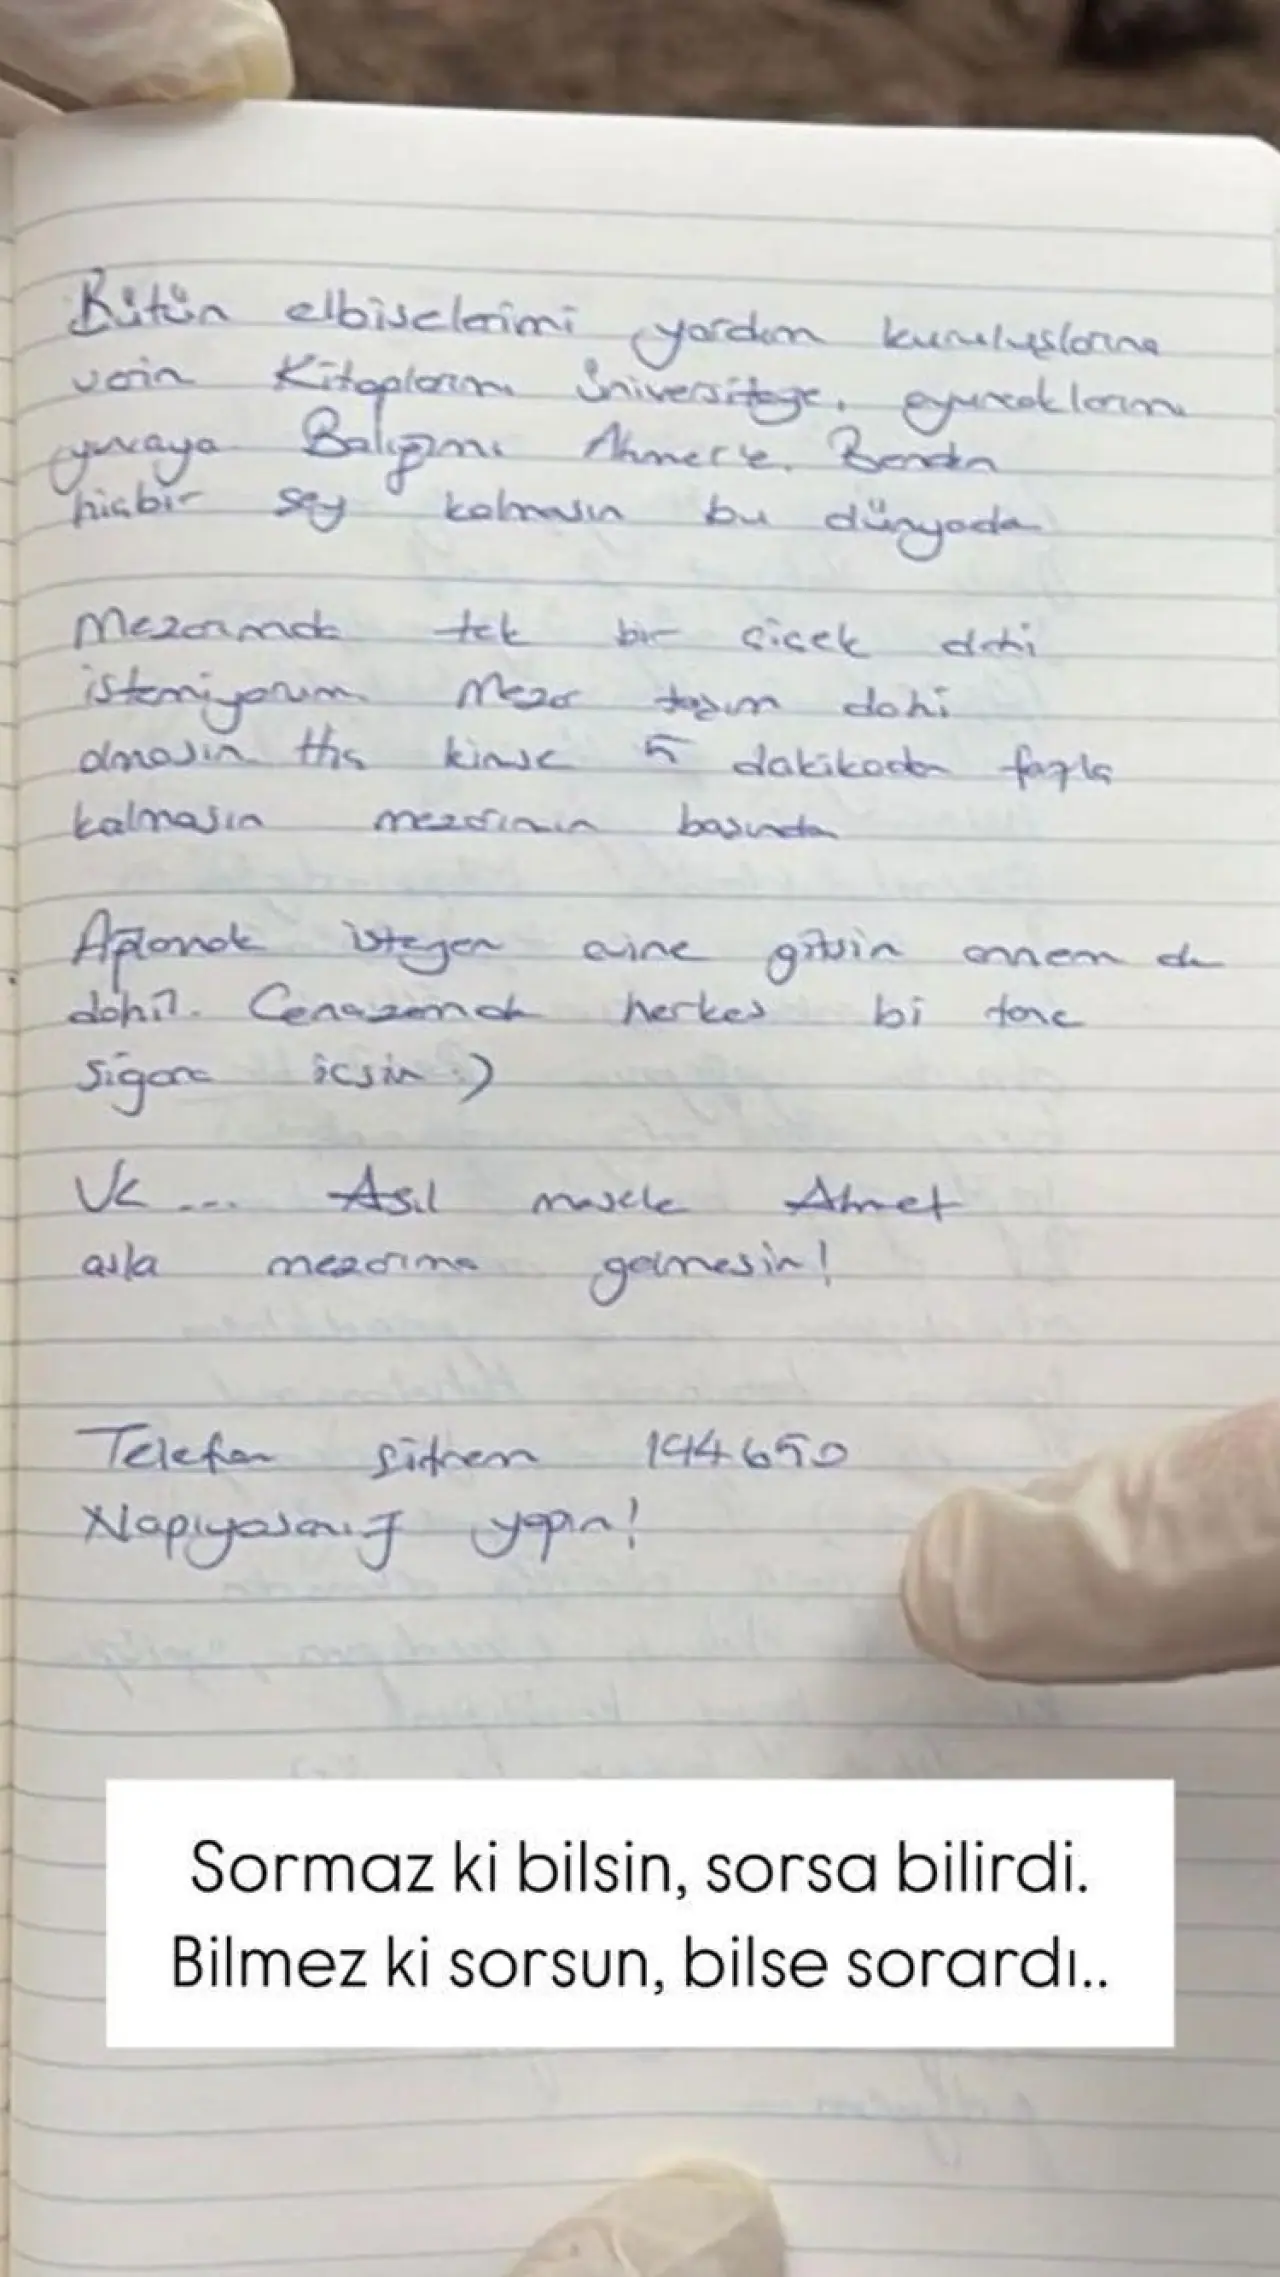 Bütün elbiselerimi yardım kuruluşlarına
verin Kitaplarımı üniversiteye, oyuncaklarımı
yuvaya Balığımı Ahmet'e. Benden
hiçbir şey kalmasın bu dünyada
Mezarımda tek bir çiçek dahi
istemiyorum Mezar taşım dahi
olmasın Hiç kimse 5 dakikadan fazla
kalmasın mezarımın başında
Ağlamak isteyen evine gitsin annem de
dahil. Cenazemde herkes bi tane
sigara içsin :)
Ve... Asıl mesele Ahmet
asla mezarıma gelmesin!
Telefon şifrem 194650
Napıyosanız yapın!
Sormaz ki bilsin, sorsa bilirdi.
Bilmez ki sorsun, bilse sorardı..